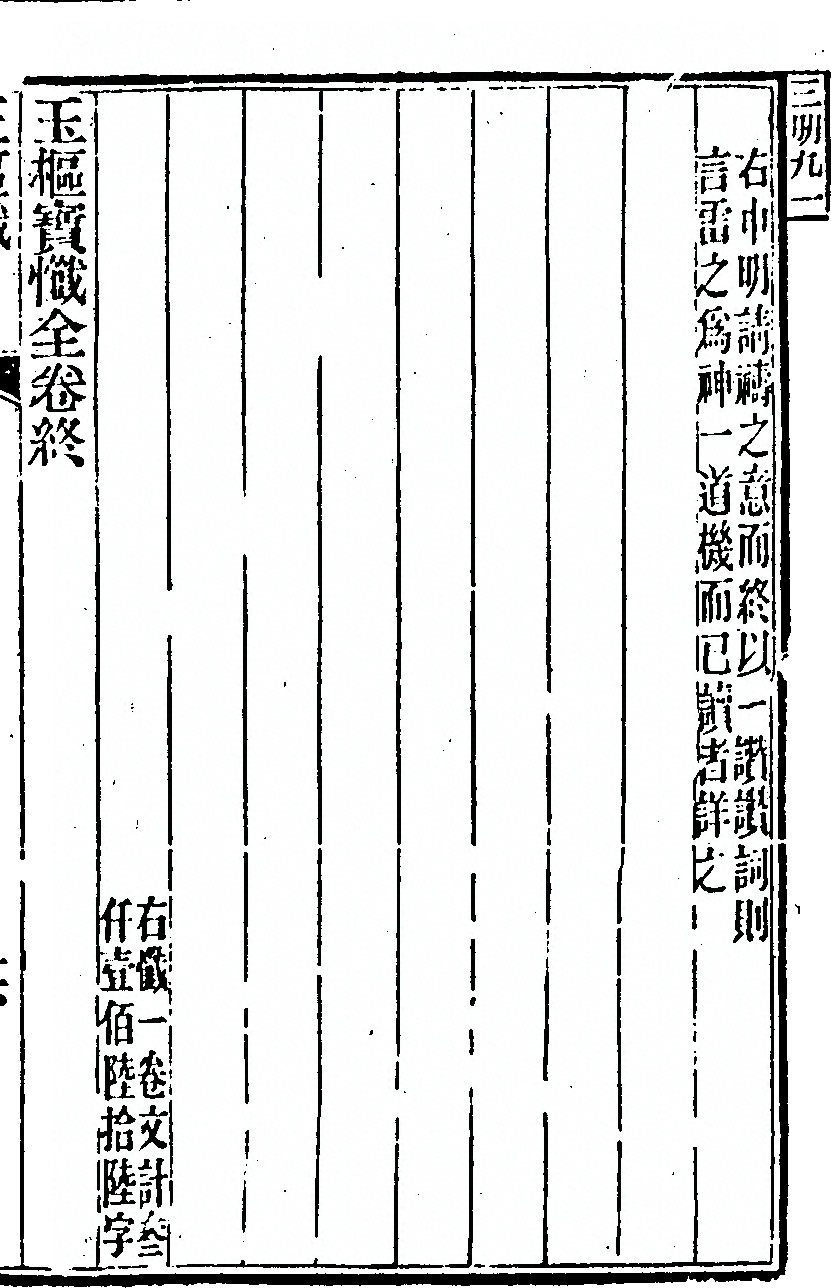 三明九一
右申明請禱之意而終以一讚讚詞則
言雷之爲神一道機而已讀者詳之
右懺一卷文計叄
仟壹佰陸拾陸字
玉樞寶懺全卷終